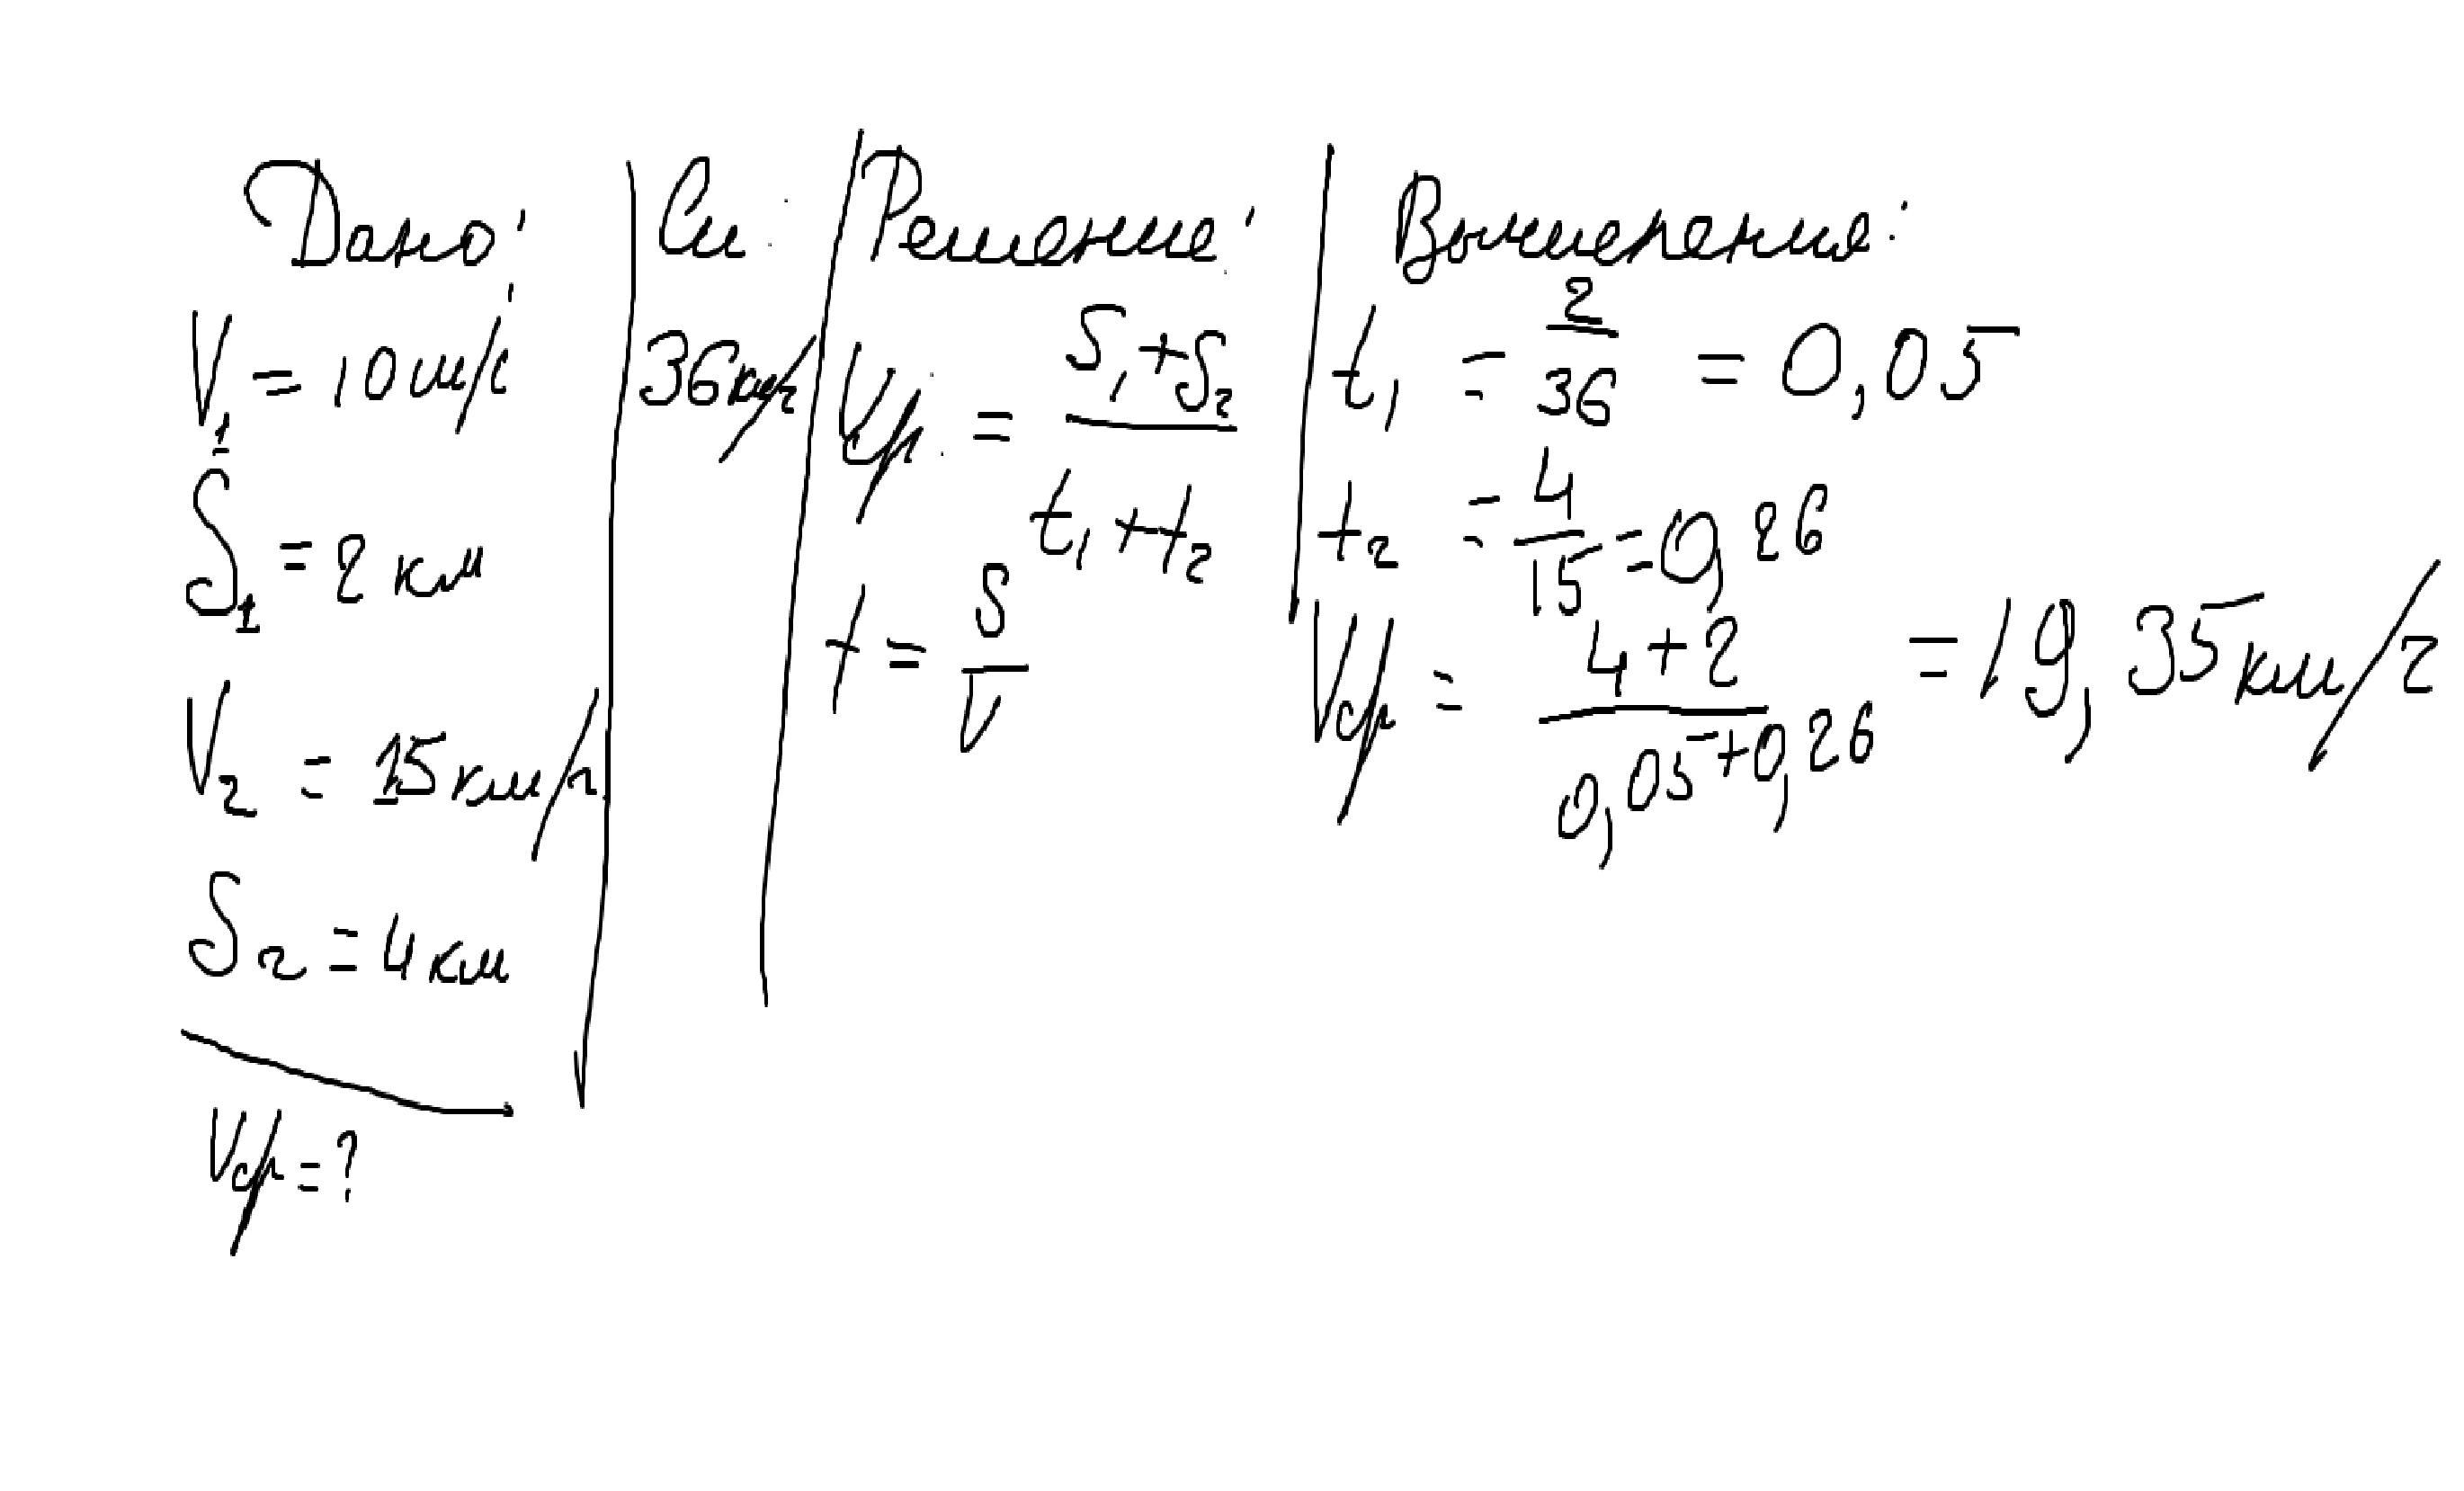 Дано:
V₁ = 10 м/с
S₁ = 2 км
V₂ = 15 км/ч
S₂ = 4 км
Vср = ?
Си:
36 км/ч
Решение:
Vср = (S₁ + S₂) / (t₁ + t₂)
t = S / V
Вычисление:
t₁ = 2/36 = 0,05
t₂ = 4/15 = 0,26
Vср = (4 + 2) / (0,05 + 0,26) = 19,35 км/ч